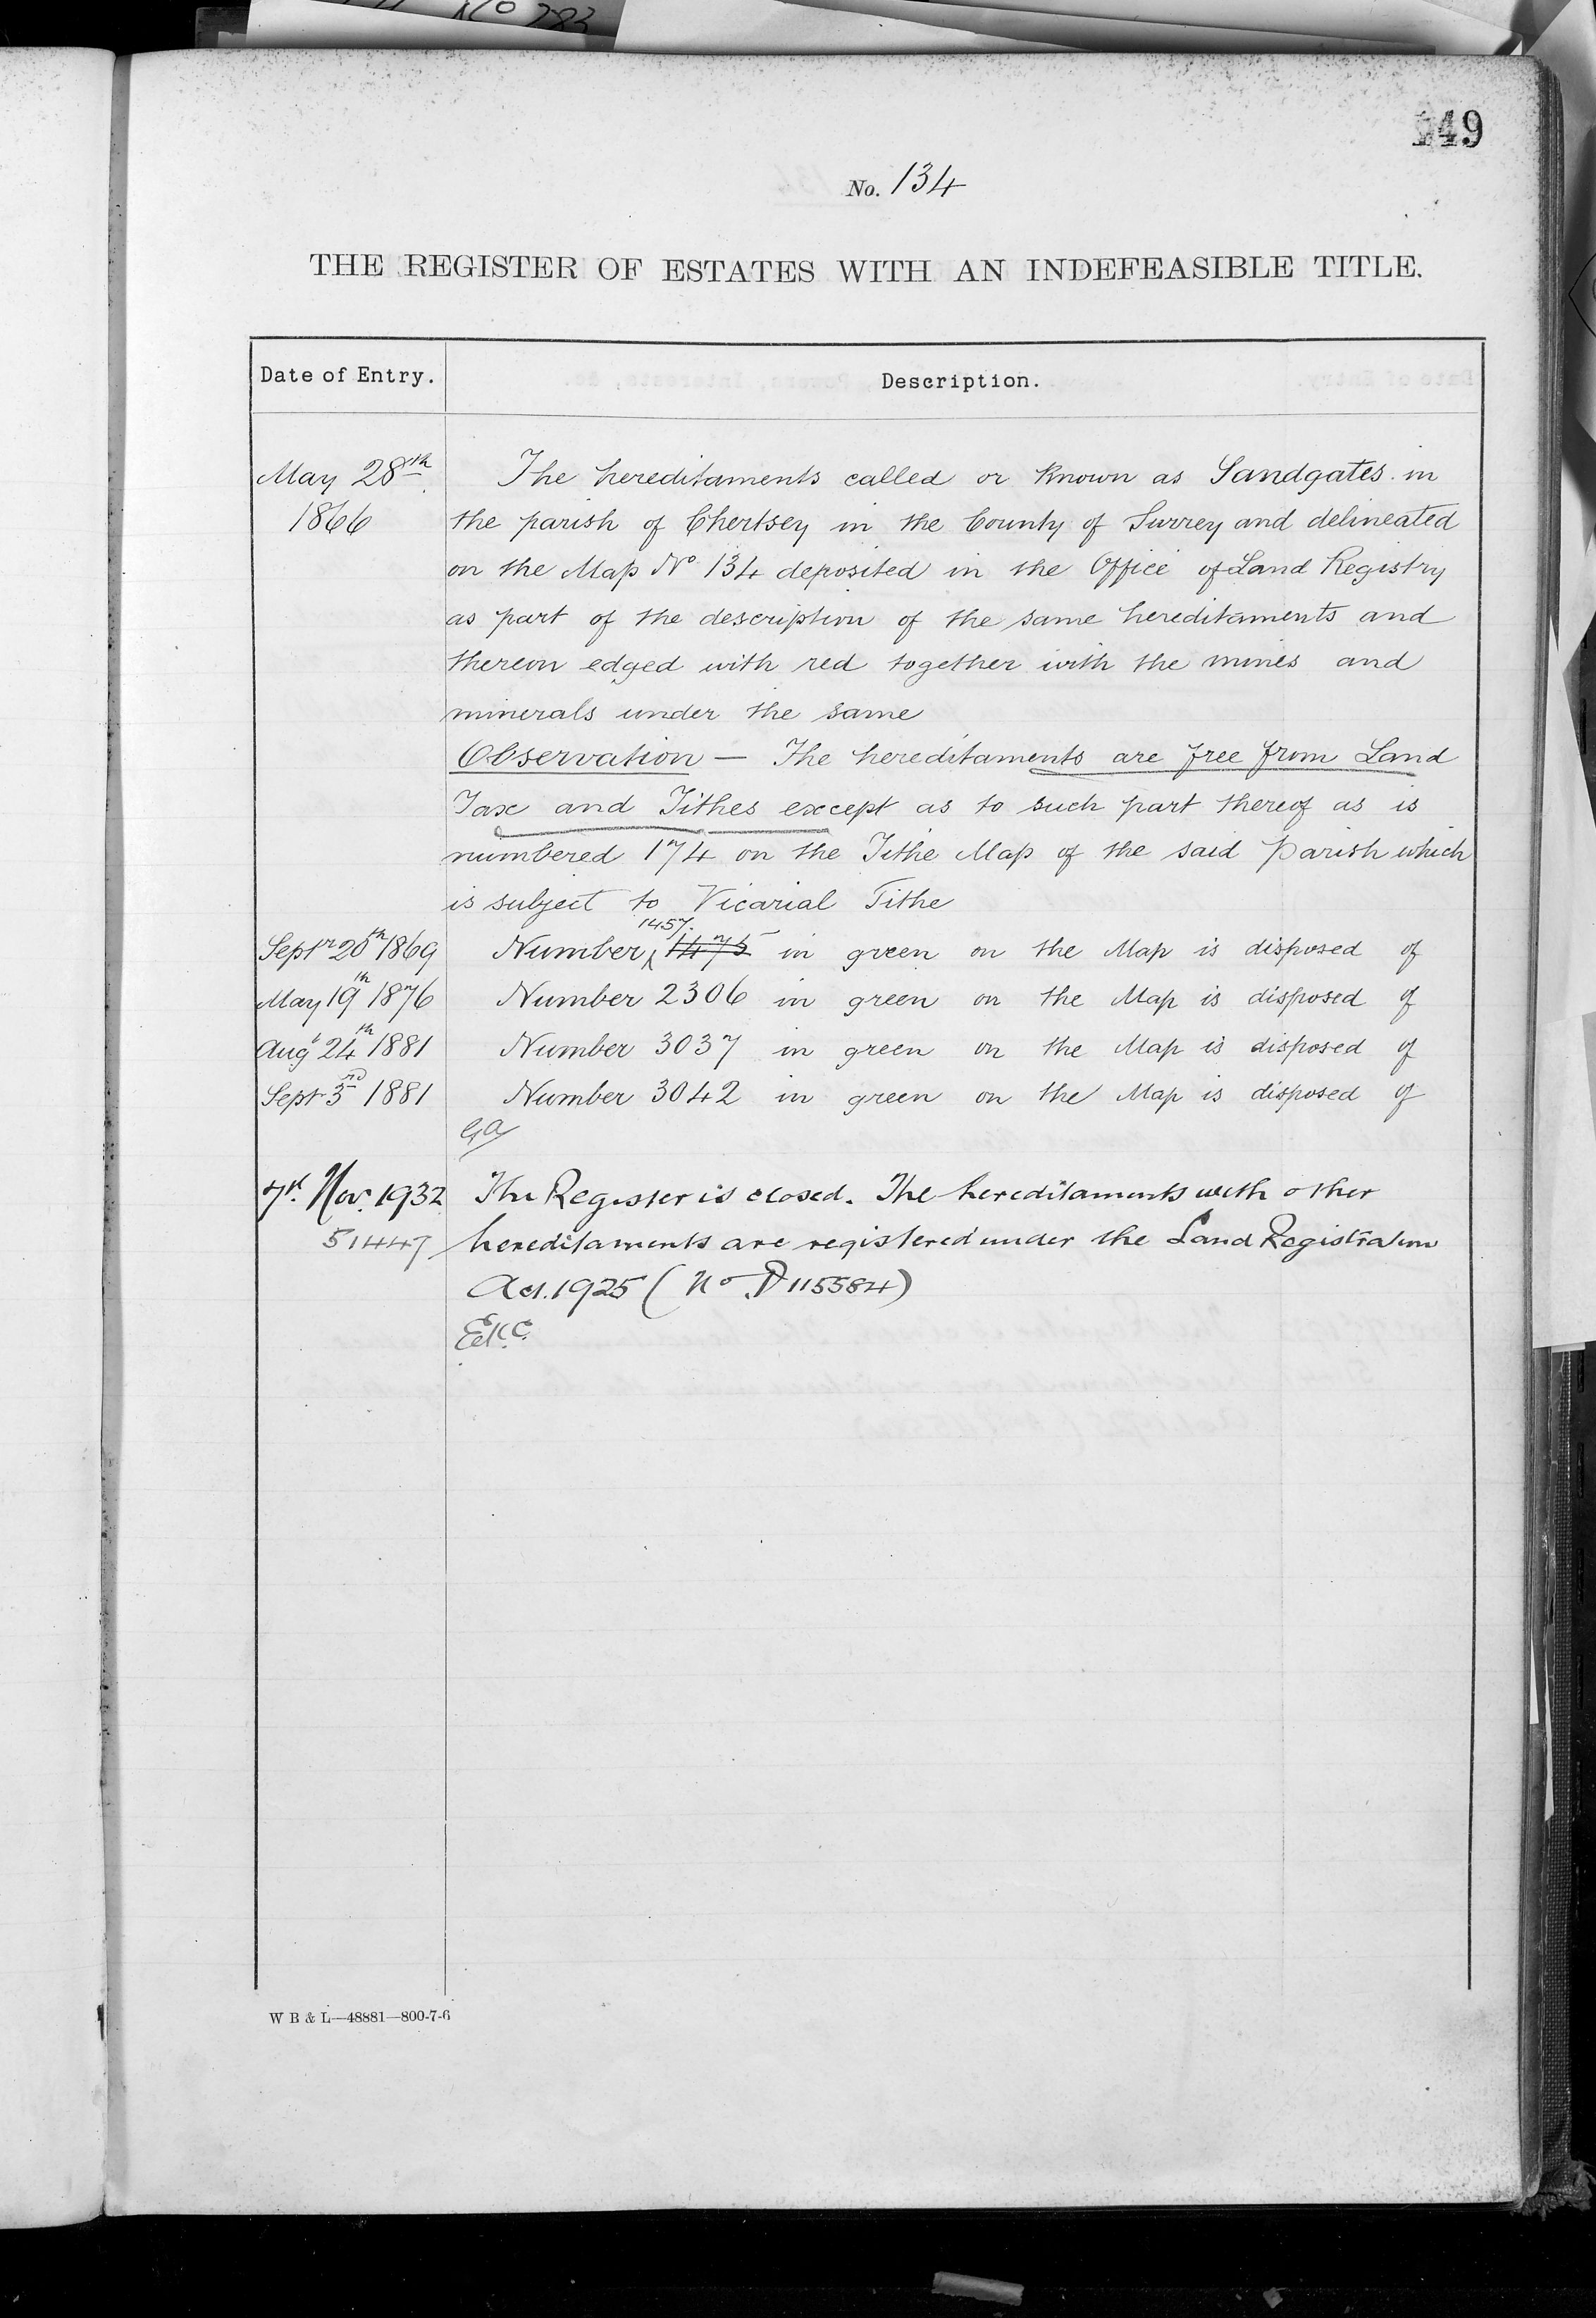 No 283
149
No. 134
THE REGISTER OF ESTATES WITH AN INDEFEASIBLE TITLE.
Date of Entry.
Description.
May 28th
1866
The hereditaments called or known as Sandgates in
the parish of Chertsey in the County of Surrey and delineated
on the Map No 134 deposited in the Office of Land Registry
as part of the description of the same hereditaments and
thereon edged with red together with the mines and
minerals under the same
Observation — The hereditaments are free from Land
Tax and Tithes except as to such part thereof as is
numbered 174 on the Tithe Map of the said Parish which
is subject to Vicarial Tithe
1457.
Septr 20th 1869 Number 1475 in green on the Map is disposed of
May 19th 1876 Number 2306 in green on the Map is disposed of
Augt 24th 1881 Number 3037 in green on the Map is disposed of
Sept 3rd 1881 Number 3042 in green on the Map is disposed of
7th Nov. 1932 The Register is closed. The hereditaments with other
51447 hereditaments are registered under the Land Registration
Act. 1925 (No. P 115584)
W B & L—48881—800-7-6